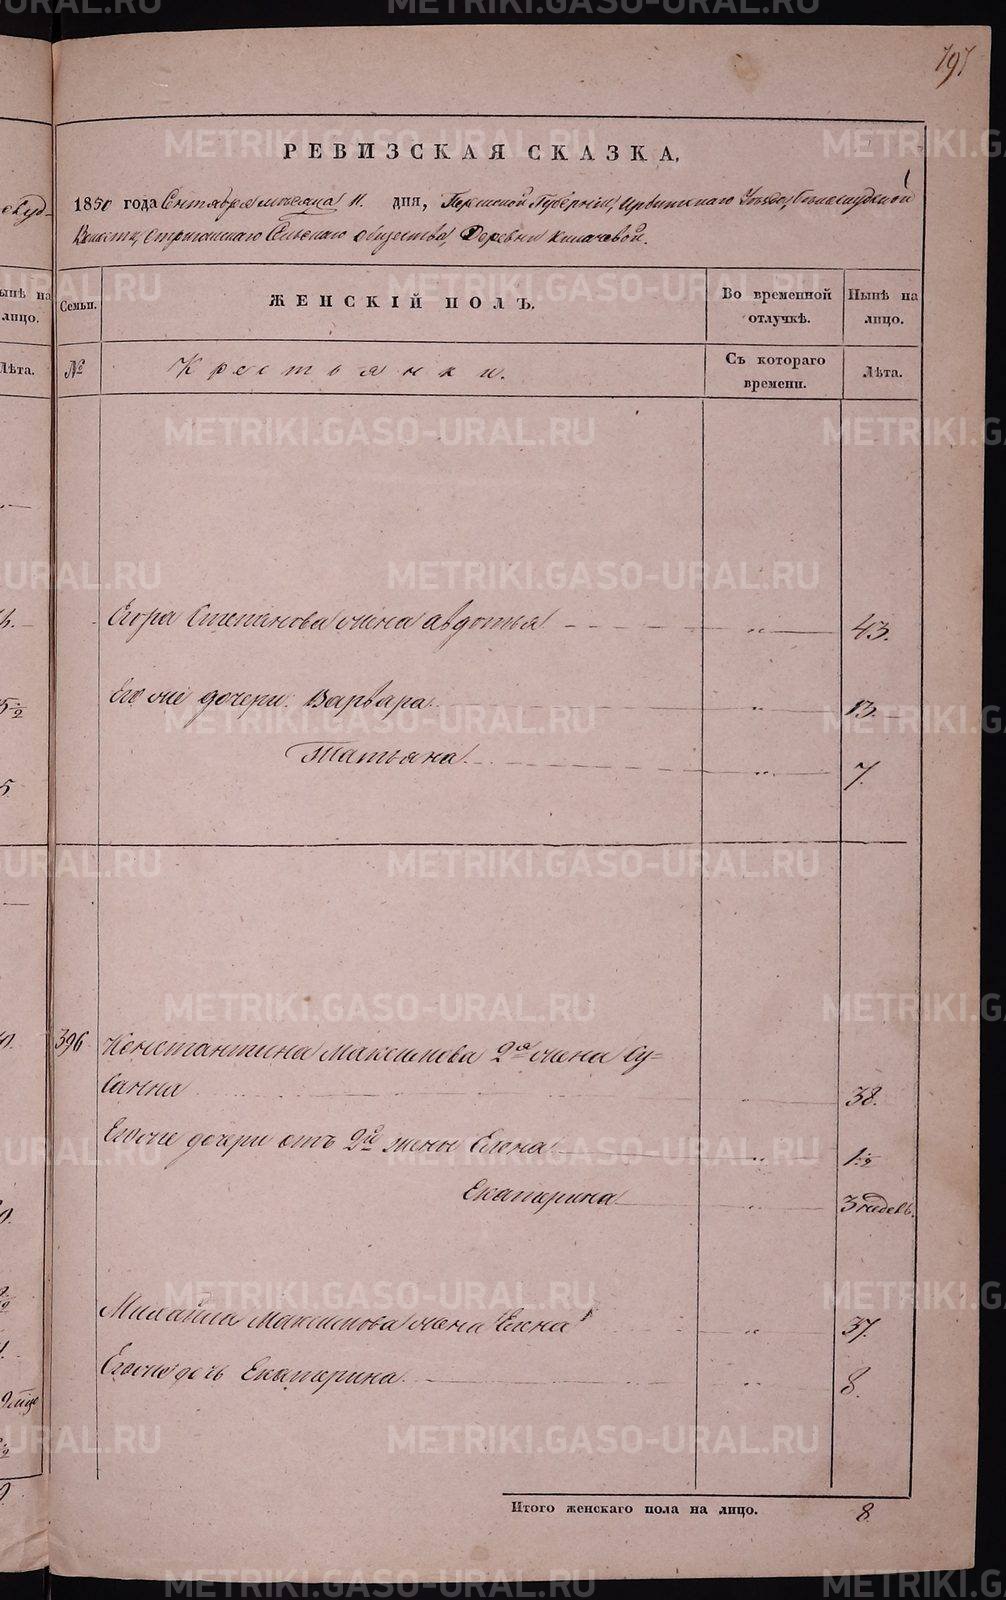 797
РЕВИЗСКАЯ СКАЗКА,
1850 года Сентября месяца 11. дня, Пермской Губерніи, Ирбитскаго Уѣзда,
Волости, Стриганскаго Сельскаго общества, Деревни Кипачевой.
Семьи. ЖЕНСКІЙ ПОЛЪ. Во временной отлучкѣ. Нынѣ на лицо.
№ Крестьянки. Съ котораго времени. Лѣта.
Егора Степанова жена Авдотья „ 43.
Его же дочери: Варвара „ 13.
Татьяна „ 7.
396 Константина Максимова 2я жена Су-
санна „ 38.
Его же дочери отъ 2й жены Елена „ 1 1/2
Екатерина „ 3 недел.
Михайла Максимова жена Елена „ 37.
Его же дочь Екатерина „ 8.
Итого женскаго пола на лицо. 8
METRIKI.GASO-URAL.RU